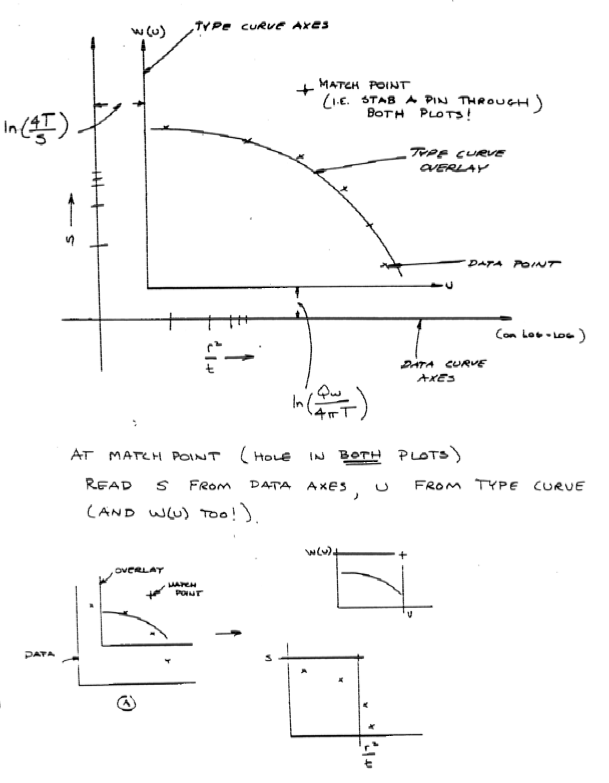 W(U)
TYPE CURVE AXES
MATCH POINT
(I.E. STAB A PIN THROUGH)
BOTH PLOTS!
ln(4T/S)
TYPE CURVE
OVERLAY
S
DATA POINT
U
(on LOG-LOG)
r²/t
DATA CURVE
AXES
ln(Qw/4πT)
AT MATCH POINT (HOLE IN BOTH PLOTS)
READ S FROM DATA AXES, U FROM TYPE CURVE
(AND W(U) TOO!).
OVERLAY
MATCH
POINT
DATA
A
W(U)
U
S
r²/t